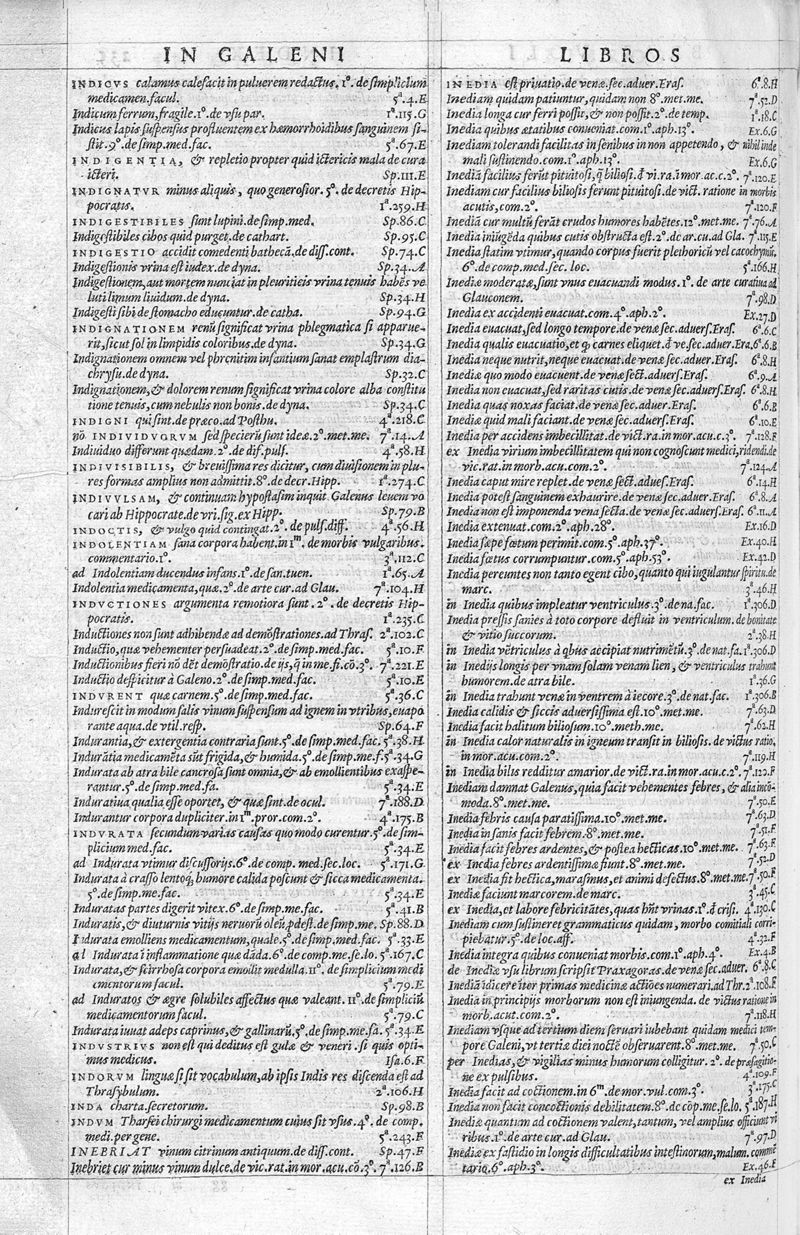 IN GALENI
INDICVS calamus calefacit in puluerem redactus. 1°. de simplicium
medicamen.facul. 5ª.4.E
Indicum ferrum, fragile. 1°. de vsu par. 1ª.115.G
Indicus lapis suspensus profluentem ex hæmorrhoidibus sanguinem si-
stit. 9°. de simp.med.fac. 5ª.67.E
INDIGENTIA, & repletio propter quid ictericis mala de cura
icteri. Sp.111.E
INDIGNATVR minus aliquis, quo generosior. 5°. de decretis Hip-
pocratis. 1ª.259.H
INDIGESTIBILES sunt lupini. de simp.med. Sp.86.C
Indigestibiles cibos quid purget. de cathart. Sp.95.C
INDIGESTIO accidit comedenti bathecā. de diss.cont. Sp.74.C
Indigestionis vrina est iudex. de dyna. Sp.34.A
Indigestionem, aut mortem nunciat in pleuriticis vrina tenuis habēs ve
luti limum liuidum. de dyna. Sp.34.H
Indigesti sibi de stomacho educuntur. de catha. Sp.94.G
INDIGNATIONEM renū significat vrina phlegmatica si apparue-
rit, sicut sol in limpidis coloribus. de dyna. Sp.34.G
Indignationem omnem vel phrenitim infantium sanat emplastrum dia-
chrysu. de dyna. Sp.32.C
Indignationem, & dolorem renum significat vrina colore alba constitu
tione tenuis, cum nebulis non bonis. de dyna. Sp.34.C
INDIGNI qui sint. de præco. ad Posthu. 4ª.218.C
nō INDIVIDVORVM sed specierū sunt ideæ. 2°. met.me. 7ª.14.A
Indiuiduo differunt quædam. 2°. de dif.puls. 4ª.58.H
INDIVISIBILIS, & breuissima res dicitur, cum diuisionem in plu-
res formas amplius non admittit. 8°. de decr.Hipp. 1ª.274.C
INDIVVLSAM, & continuam hypostasim inquit Galenus leuem vo
cari ab Hippocrate. de vri.sig. ex Hipp. Sp.79.B
INDOCTIS, & vulgo quid contingat. 2°. de puls.diff. 4ª.56.H
INDOLENTIAM sana corpora habent. in 1ᵐ. de morbis vulgaribus.
commentario. 1°. 3ª.112.C
ad Indolentiam ducendus infans. 1°. de san.tuen. 1ª.65.A
Indolentia medicamenta, quæ. 2°. de arte cur. ad Glau. 7ª.104.H
INDVCTIONES argumenta remotiora sunt. 2°. de decretis Hip-
pocratis. 1ª.235.C
Inductiones non sunt adhibendæ ad demōstrationes. ad Thras. 2ª.102.C
Inductio, quæ vehementer persuadeat. 2°. de simp.med.fac. 5ª.10.F
Inductionibus fieri nō dēt demōstratio. de ijs, q̄ in me.fi.cō. 3°. 7ª.221.E
Inductio despicitur à Galeno. 2°. de simp.med.fac. 5ª.10.E
INDVRENT quæ carnem. 5°. de simp.med.fac. 5ª.36.C
Indurescit in modum salis vinum suspensum ad ignem in vtribus, euapo
rante aqua. de vtil.resp. Sp.64.F
Indurantia, & extergentia contraria sunt. 5°. de simp.med.fac. 5ª.38.H
Indurātia medicamēta sūt frigida, & humida. 5°. de simp.me.f. 5ª.34.G
Indurata ab atra bile cancrosa sunt omnia, & ab emollientibus exaspe-
rantur. 5°. de simp.med.fa. 5ª.34.E
Induratiua qualia esse oportet, & quæ sint. de ocul. 7ª.188.D
Indurantur corpora dupliciter. in 1ᵐ. pror.com. 2°. 4ª.175.B
INDVRATA secundum varias causas quo modo curentur. 5°. de sim-
plicium med.fac. 5ª.34.E
ad Indurata vtimur discussorijs. 6°. de comp.med.sec.loc. 5ª.171.G
Indurata à crasso lentoq; humore calida poscunt & sicca medicamenta.
5°. de simp.me.fac. 5ª.34.E
Induratas partes digerit vitex. 6°. de simp.me.fac. 5ª.41.B
Induratis, & diuturnis vitijs neruorū oleū pdest. de simp.me. Sp.88.D
Indurata emolliens medicamentum, quale. 5°. de simp.med.fac. 5ª.33.E
ad Indurata ī inflammatione quæ dāda. 6°. de comp.me.se.lo. 5ª.167.C
Indurata, & scirrhosa corpora emollit medulla. 11°. de simplicium medi
camentorum facul. 5ª.79.E
ad Induratos & ægre solubiles affectus quæ valeant. 11°. de simpliciū
medicamentorum facul. 5ª.79.C
Indurata iuuat adeps caprinus, & gallinarū. 5°. de simp.me.fa. 5ª.34.E
INDVSTRIVS non est qui deditus est gulæ & veneri. si quis opti-
mus medicus. Isa.6.F
INDORVM linguæ si sit vocabulum, ab ipsis Indis res discenda est ad
Thrasybulum. 2ª.106.H
INDA charta. secretorum. Sp.98.B
INDVM Tharsei chirurgi medicamentum cuius sit vsus. 4°. de comp.
medi.per gene. 5ª.243.F
INEBRIAT vinum citrinum antiquum. de diss.cont. Sp.47.F
Inebriet cur minus vinum dulce. de vic.rat.in mor.acu.cō. 3°. 7ª.126.B
LIBROS
INEDIA est priuatio. de venæ.sec.aduer.Eras. 6ª.8.H
Inediam quidam patiuntur, quidam non 8°. met.me. 7ª.52.D
Inedia longa cur ferri possit, & non possit. 2°. de temp. 1ª.18.C
Inedia quibus ætatibus conueniat. com. 1°. aph. 13°. Ex.6.G
Inediam tolerandi facilitas in senibus in non appetendo, & nihil inde
mali sustinendo. com. 1°. aph. 13°. Ex.6.G
Inediā facilius ferūt pituitosi, q̄ biliosi. d̄ vi.ra.ī mor.ac.c. 2°. 7ª.120.E
Inediam cur facilius biliosis ferunt pituitosi. de vict. ratione in morbis
acutis, com. 2°. 7ª.120.F
Inediā cur multū ferāt crudos humores habētes. 12°. met.me. 7ª.76.A
Inedia iniūgēda quibus cutis obstructa est. 2°. de ar.cu.ad Gla. 7ª.115.E
Inedia statim vtimur, quando corpus fuerit plethoricū vel cacochymū.
6°. de comp.med.sec. loc. 5ª.166.H
Inediæ moderatæ, sunt vnus euacuandi modus. 1°. de arte curatiua ad
Glauconem. 7ª.98.D
Inedia ex accidenti euacuat. com. 4°. aph. 2°. Ex.27.D
Inedia euacuat, sed longo tempore. de venæ sec.aduers.Eras. 6ª.6.C
Inedia qualis euacuatio, et q̄ carnes eliquet. d̄ ve.sec.aduer.Era. 6ª.6.B
Inedia neque nutrit, neque euacuat. de venæ sec.aduer.Eras. 6ª.8.H
Inediæ quo modo euacuent. de venæ sect.aduers.Eras. 6ª.9.A
Inedia non euacuat, sed raritas cutis. de venæ sec.aduers.Eras. 6ª.8.H
Inedia quas noxas faciat. de venæ sec.aduer.Eras. 6ª.6.B
Inediæ quid mali faciant. de venæ sec.aduers.Eras. 6ª.10.E
Inedia per accidens imbecillitat. de vict.ra.in mor.acu.c. 3°. 7ª.128.F
ex Inedia virium imbecillitatem qui non cognoscunt medici, ridendi. de
vic.rat.in morb.acu.com. 2°. 7ª.124.A
Inedia caput mire replet. de venæ sect. aduers.Eras. 6ª.14.H
Inedia potest sanguinem exhaurire. de venæ sec.aduer.Eras. 6ª.8.A
Inedia non est imponenda vena secta. de venæ sec.aduers.Eras. 6ª.11.A
Inedia extenuat. com. 2°. aph. 28°. Ex.16.D
Inedia sæpe fœtum perimit. com. 5°. aph. 37°. Ex.40.H
Inedia fœtus corrumpuntur. com. 5°. aph. 53°. Ex.42.D
Inedia pereuntes non tanto egent cibo, quanto qui iugulantur spiritu. de
marc. 3ª.46.H
in Inedia quibus impleatur ventriculus. 3°. de na.fac. 1ª.306.D
Inedia pressis sanies à toto corpore defluit in ventriculum. de bonitate
& vitio succorum. 2ª.38.H
in Inedia vētriculus à qbus accipiat nutrimētū. 3°. de nat.fa. 1ª.306.D
in Inedijs longis per vnam solam venam lien, & ventriculus trahunt
humorem. de atra bile. 1ª.36.G
in Inedia trahunt venæ in ventrem à iecore. 3°. de nat.fac. 1ª.306.B
Inedia calidis & siccis aduersissima est. 10°. met.me. 7ª.63.D
Inedia facit halitum biliosum. 10°. meth.me. 7ª.62.H
in Inedia calor naturalis in igneum transit in biliosis. de victus ratio.
in mor.acu.com. 2°. 7ª.119.H
in Inedia bilis redditur amarior. de vict.ra.in mor.acu.c. 2°. 7ª.122.F
Inediam damnat Galenus, quia facit vehementes febres, & alia incō-
moda. 8°. met.me. 7ª.50.E
Inedia febris causa paratissima. 10°. met.me. 7ª.63.D
Inedia in sanis facit febrem. 8°. met.me. 7ª.51.F
Inedia facit febres ardentes, & postea hecticas. 10°. met.me. 7ª.63.F
ex Inedia febres ardentissimæ fiunt. 8°. met.me. 7ª.52.D
ex Inedia fit hectica, marasmus, et animi defectus. 8°. met.me. 7ª.50.F
Inediæ faciunt marcorem. de marc. 3ª.45.C
ex Inedia, et labore febricitātes, quas hñt vrinas. 1°. d̄ crisi. 4ª.130.C
Inediam cum sustineret grammaticus quidam, morbo comitiali corri-
piebatur. 5°. de loc.aff. 4ª.32.F
Inedia integra quibus conueniat morbis. com. 1°. aph. 4°. Ex.4.B
de Inediæ vsu librum scripsit Praxagoras. de venæ sec.aduer. 6ª.8.C
Inediā idicere iter primas medicinæ actiōes numerari. ad Thr. 2ª.108.F
Inedia in principijs morborum non est iniungenda. de victus ratione in
morb.acut.com. 2°. 7ª.118.H
Inediam vsque ad tertium diem seruari iubebant quidam medici tem-
pore Galeni, vt tertiæ diei noctē obseruarent. 8°. met.me. 7ª.50.C
per Inedias, & vigilias minus humorum colligitur. 2°. de præsagitio-
ne ex pulsibus. 4ª.109.F
Inedia facit ad coctionem. in 6ᵐ. de mor.vul.com. 3°. 3ª.175.C
Inedia non facit concoctionis debilitatem. 8°. de cōp.me.se.lo. 5ª.187.H
Inediæ quantum ad coctionem valent, tantum, vel amplius officiunt vi
ribus. 1°. de arte cur. ad Glau. 7ª.97.D
Inediæ ex fastidio in longis difficultatibus intestinorum, malum. comme
tario. 6°. aph. 3°. Ex.46.F
ex Inedia